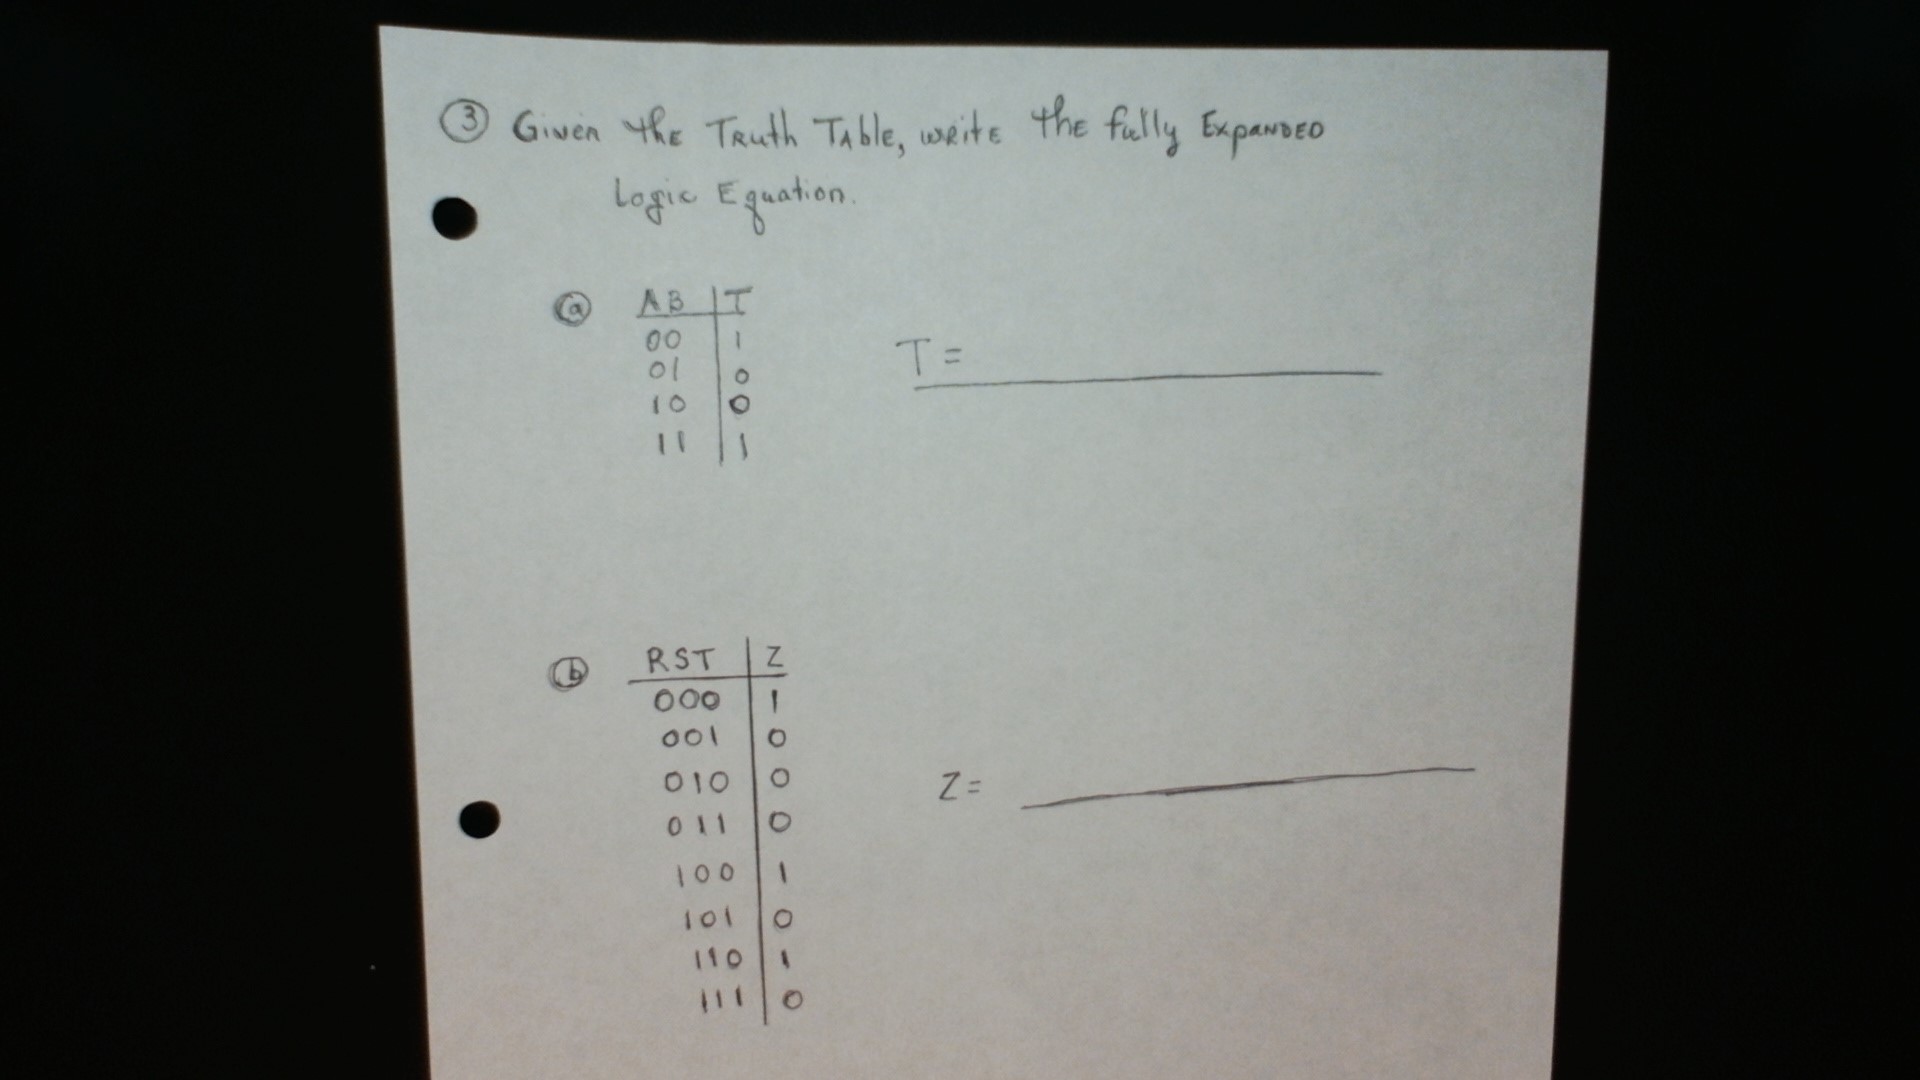 ③ Given the Truth Table, write the fully Expanded
Logic Equation.
ⓐ AB | T
00 | 1
01 | 0
10 | 0
11 | 1
T =
ⓑ RST | Z
000 | 1
001 | 0
010 | 0
011 | 0
100 | 1
101 | 0
110 | 1
111 | 0
Z =